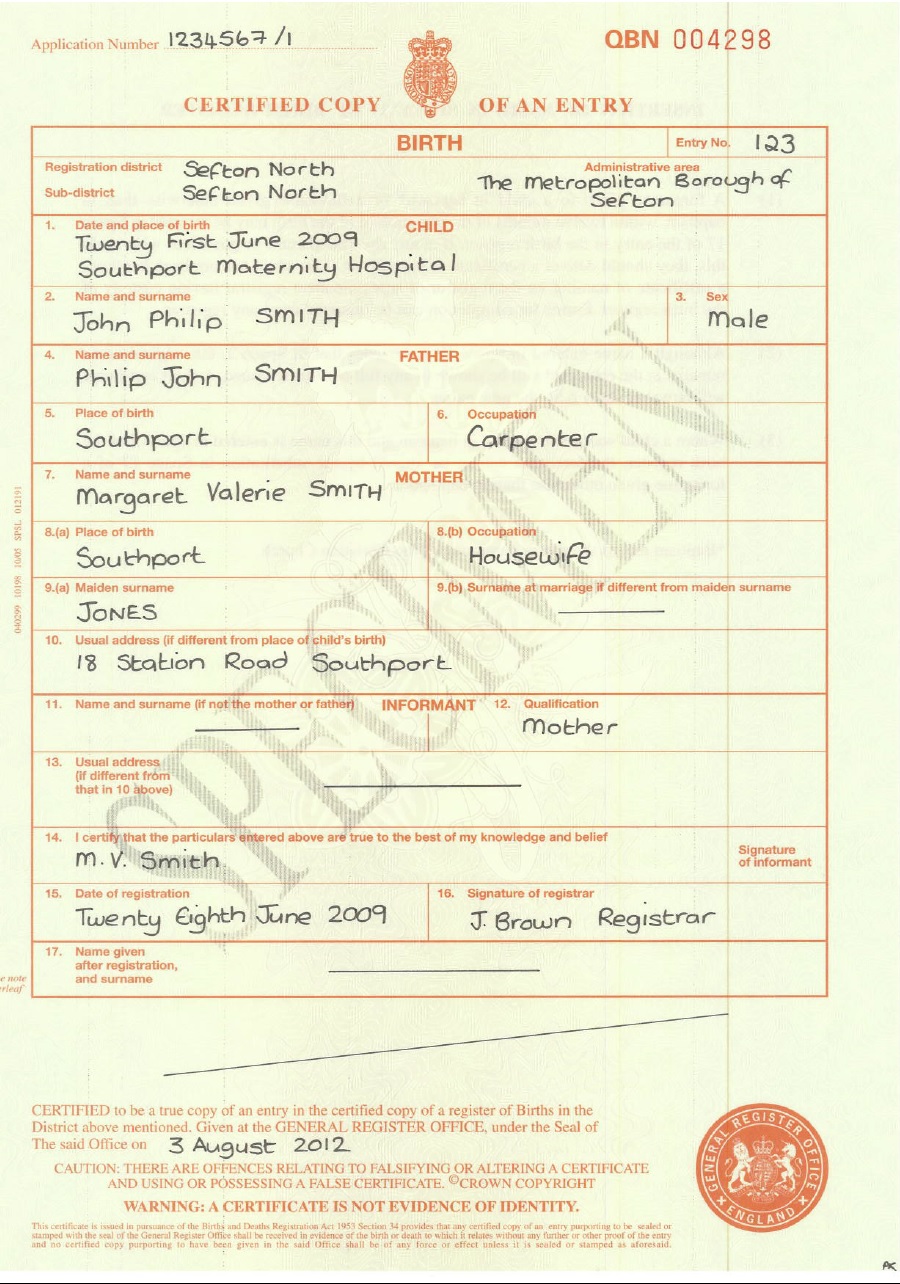 Application Number 1234567/1
QBN 004298
CERTIFIED COPY OF AN ENTRY
BIRTH
Entry No. 123
Registration district Sefton North
Sub-district Sefton North
Administrative area
The Metropolitan Borough of
Sefton
1. Date and place of birth CHILD
Twenty First June 2009
Southport Maternity Hospital
2. Name and surname
John Philip SMITH
3. Sex
Male
4. Name and surname FATHER
Philip John SMITH
5. Place of birth
Southport
6. Occupation
Carpenter
7. Name and surname MOTHER
Margaret Valerie SMITH
8.(a) Place of birth
Southport
8.(b) Occupation
Housewife
9.(a) Maiden surname
JONES
9.(b) Surname at marriage if different from maiden surname
10. Usual address (if different from place of child's birth)
18 Station Road Southport
11. Name and surname (if not the mother or father) INFORMANT
12. Qualification
Mother
13. Usual address
(if different from
that in 10 above)
14. I certify that the particulars entered above are true to the best of my knowledge and belief
M. V. Smith
Signature
of informant
15. Date of registration
Twenty Eighth June 2009
16. Signature of registrar
J. Brown Registrar
17. Name given
after registration,
and surname
SPECIMEN
040299 10198 10/05 SPSL 012191
e note
erleaf
CERTIFIED to be a true copy of an entry in the certified copy of a register of Births in the
District above mentioned. Given at the GENERAL REGISTER OFFICE, under the Seal of
The said Office on 3 August 2012
CAUTION: THERE ARE OFFENCES RELATING TO FALSIFYING OR ALTERING A CERTIFICATE
AND USING OR POSSESSING A FALSE CERTIFICATE. ©CROWN COPYRIGHT
WARNING: A CERTIFICATE IS NOT EVIDENCE OF IDENTITY.
This certificate is issued in pursuance of the Births and Deaths Registration Act 1953 Section 34 provides that any certified copy of an entry purporting to be sealed or
stamped with the seal of the General Register Office shall be received in evidence of the birth or death to which it relates without any further or other proof of the entry
and no certified copy purporting to have been given in the said Office shall be of any force or effect unless it is sealed or stamped as aforesaid.
GENERAL REGISTER OFFICE
ENGLAND